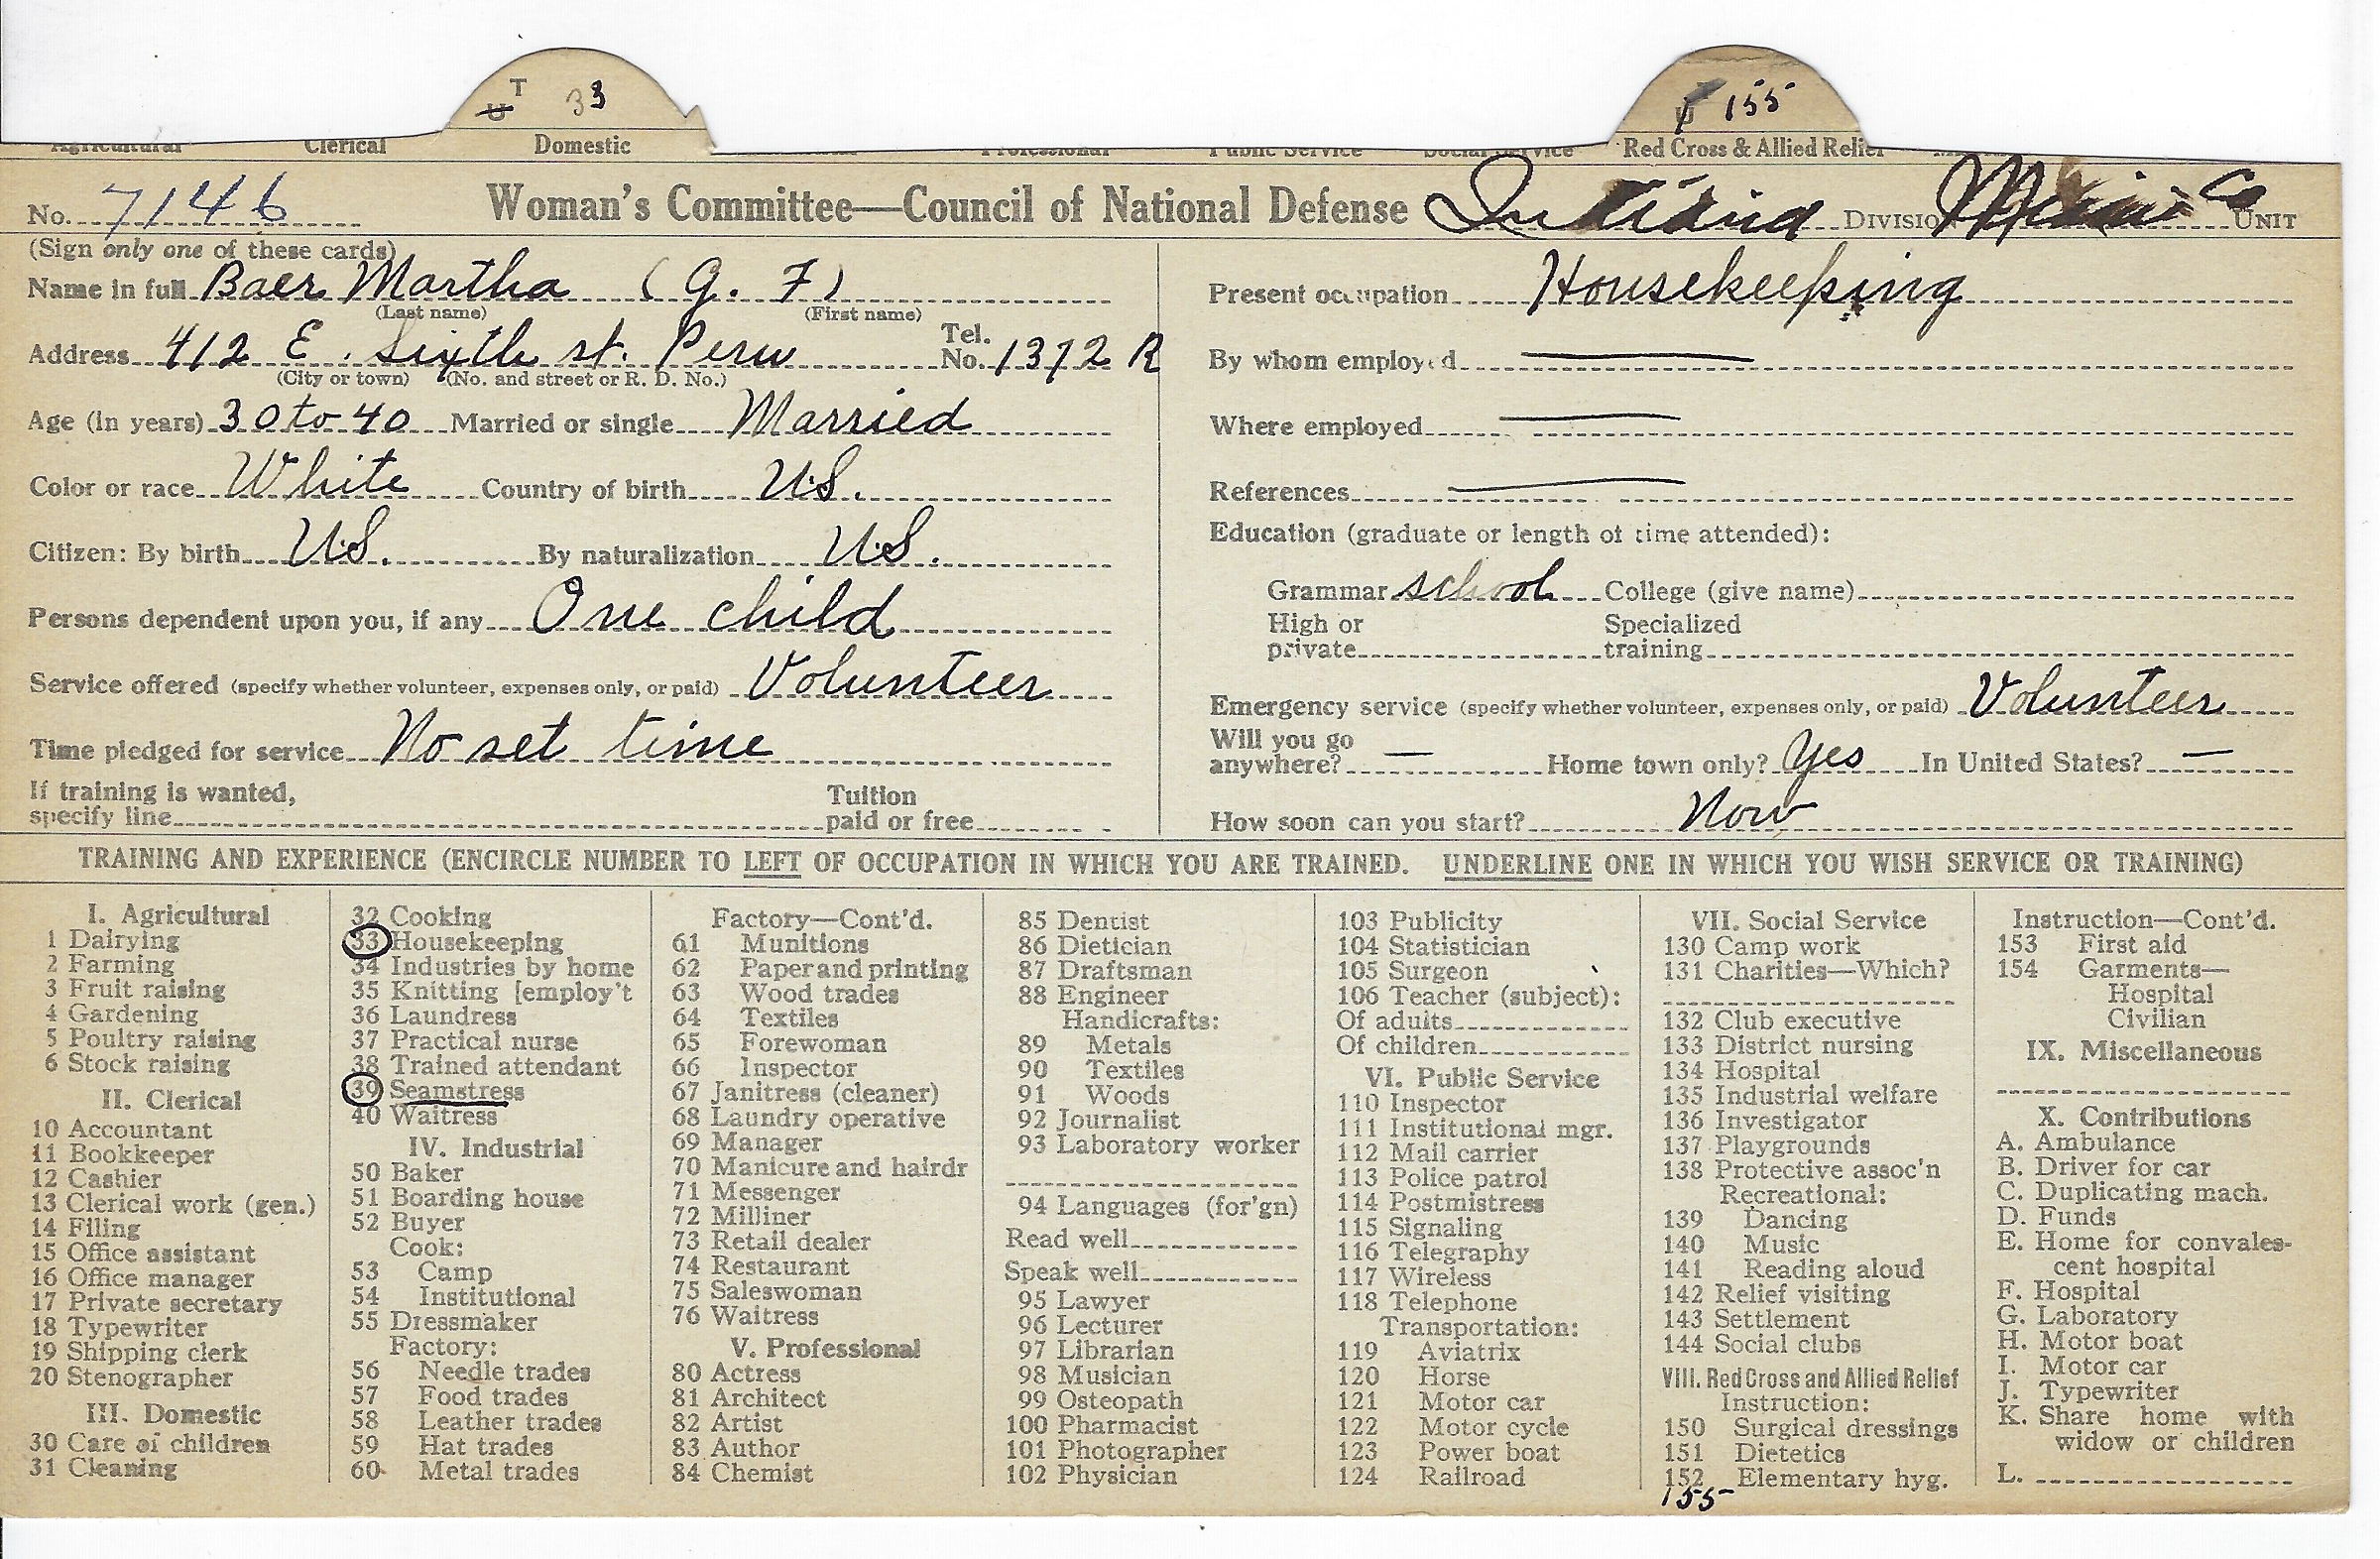 T
U 33
U 155
Agricultural Clerical Domestic Professional Public Service Social Service Red Cross & Allied Relief
No. 7146 Woman's Committee—Council of National Defense Indiana DIVISION Miami Co UNIT
(Sign only one of these cards)
Name in full Baer Martha (G. F)
(Last name) (First name)
Address 412 E. Sixth st. Peru Tel. No. 1372 R
(City or town) (No. and street or R. D. No.)
Age (in years) 30 to 40 Married or single Married
Color or race White Country of birth U.S.
Citizen: By birth U.S. By naturalization U.S.
Persons dependent upon you, if any One child
Service offered (specify whether volunteer, expenses only, or paid) Volunteer
Time pledged for service No set time
If training is wanted,
specify line Tuition paid or free
Present occupation Housekeeping
By whom employed
Where employed
References
Education (graduate or length of time attended):
Grammar school College (give name)
High or private Specialized training
Emergency service (specify whether volunteer, expenses only, or paid) Volunteer
Will you go anywhere? — Home town only? Yes In United States? —
How soon can you start? Now
TRAINING AND EXPERIENCE (ENCIRCLE NUMBER TO LEFT OF OCCUPATION IN WHICH YOU ARE TRAINED. UNDERLINE ONE IN WHICH YOU WISH SERVICE OR TRAINING)
I. Agricultural
1 Dairying
2 Farming
3 Fruit raising
4 Gardening
5 Poultry raising
6 Stock raising
II. Clerical
10 Accountant
11 Bookkeeper
12 Cashier
13 Clerical work (gen.)
14 Filing
15 Office assistant
16 Office manager
17 Private secretary
18 Typewriter
19 Shipping clerk
20 Stenographer
III. Domestic
30 Care of children
31 Cleaning
32 Cooking
33 Housekeeping
34 Industries by home
35 Knitting [employ't
36 Laundress
37 Practical nurse
38 Trained attendant
39 Seamstress
40 Waitress
IV. Industrial
50 Baker
51 Boarding house
52 Buyer
Cook:
53 Camp
54 Institutional
55 Dressmaker
Factory:
56 Needle trades
57 Food trades
58 Leather trades
59 Hat trades
60 Metal trades
Factory—Cont'd.
61 Munitions
62 Paper and printing
63 Wood trades
64 Textiles
65 Forewoman
66 Inspector
67 Janitress (cleaner)
68 Laundry operative
69 Manager
70 Manicure and hairdr
71 Messenger
72 Milliner
73 Retail dealer
74 Restaurant
75 Saleswoman
76 Waitress
V. Professional
80 Actress
81 Architect
82 Artist
83 Author
84 Chemist
85 Dentist
86 Dietician
87 Draftsman
88 Engineer
Handicrafts:
89 Metals
90 Textiles
91 Woods
92 Journalist
93 Laboratory worker
94 Languages (for'gn)
Read well
Speak well
95 Lawyer
96 Lecturer
97 Librarian
98 Musician
99 Osteopath
100 Pharmacist
101 Photographer
102 Physician
103 Publicity
104 Statistician
105 Surgeon
106 Teacher (subject):
Of adults
Of children
VI. Public Service
110 Inspector
111 Institutional mgr.
112 Mail carrier
113 Police patrol
114 Postmistress
115 Signaling
116 Telegraphy
117 Wireless
118 Telephone
Transportation:
119 Aviatrix
120 Horse
121 Motor car
122 Motor cycle
123 Power boat
124 Railroad
VII. Social Service
130 Camp work
131 Charities—Which?
132 Club executive
133 District nursing
134 Hospital
135 Industrial welfare
136 Investigator
137 Playgrounds
138 Protective assoc'n
Recreational:
139 Dancing
140 Music
141 Reading aloud
142 Relief visiting
143 Settlement
144 Social clubs
VIII. Red Cross and Allied Relief
Instruction:
150 Surgical dressings
151 Dietetics
152 Elementary hyg.
155
Instruction—Cont'd.
153 First aid
154 Garments—
Hospital
Civilian
IX. Miscellaneous
X. Contributions
A. Ambulance
B. Driver for car
C. Duplicating mach.
D. Funds
E. Home for convales-
cent hospital
F. Hospital
G. Laboratory
H. Motor boat
I. Motor car
J. Typewriter
K. Share home with
widow or children
L.